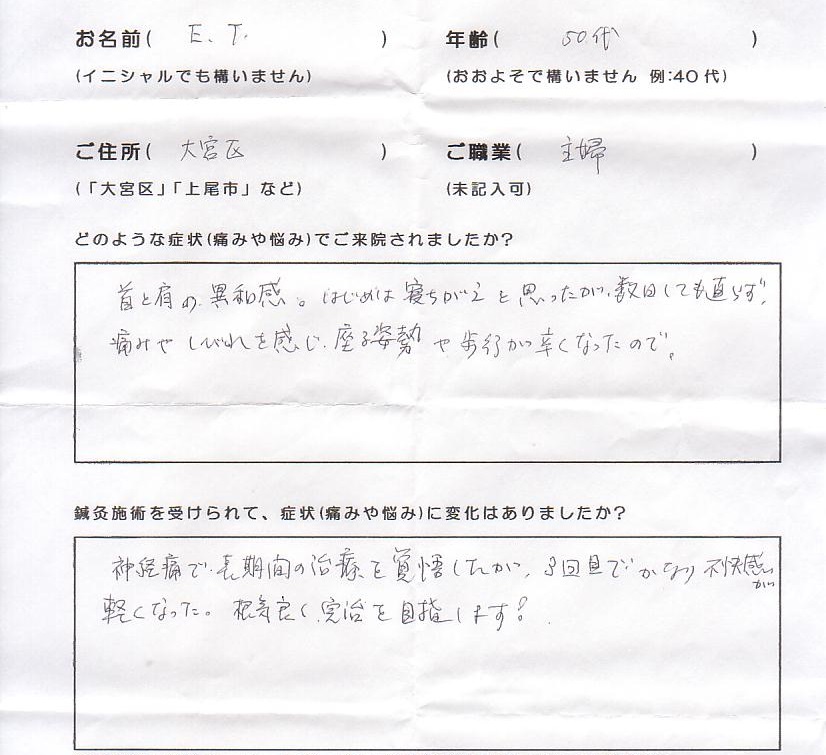 お名前( E. T. ) 年齢( 50代 )
(イニシャルでも構いません) (おおよそで構いません 例:40代)
ご住所( 大宮区 ) ご職業( 主婦 )
(「大宮区」「上尾市」など) (未記入可)
どのような症状(痛みや悩み)でご来院されましたか?
首と肩の異和感。はじめは寝ちがえと思ったが、数日しても直らず、
痛みやしびれを感じ、座る姿勢や歩行がつ辛くなったので。
鍼灸施術を受けられて、症状(痛みや悩み)に変化はありましたか?
神経痛で長期間の治療を覚悟したが、3回目でかなり不快感が
軽くなった。根気良く完治を目指します!